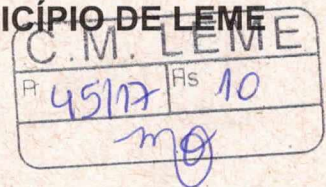 ICÍPIO DE LEME
C.M. LEME
Pr 45/17 Fls 10